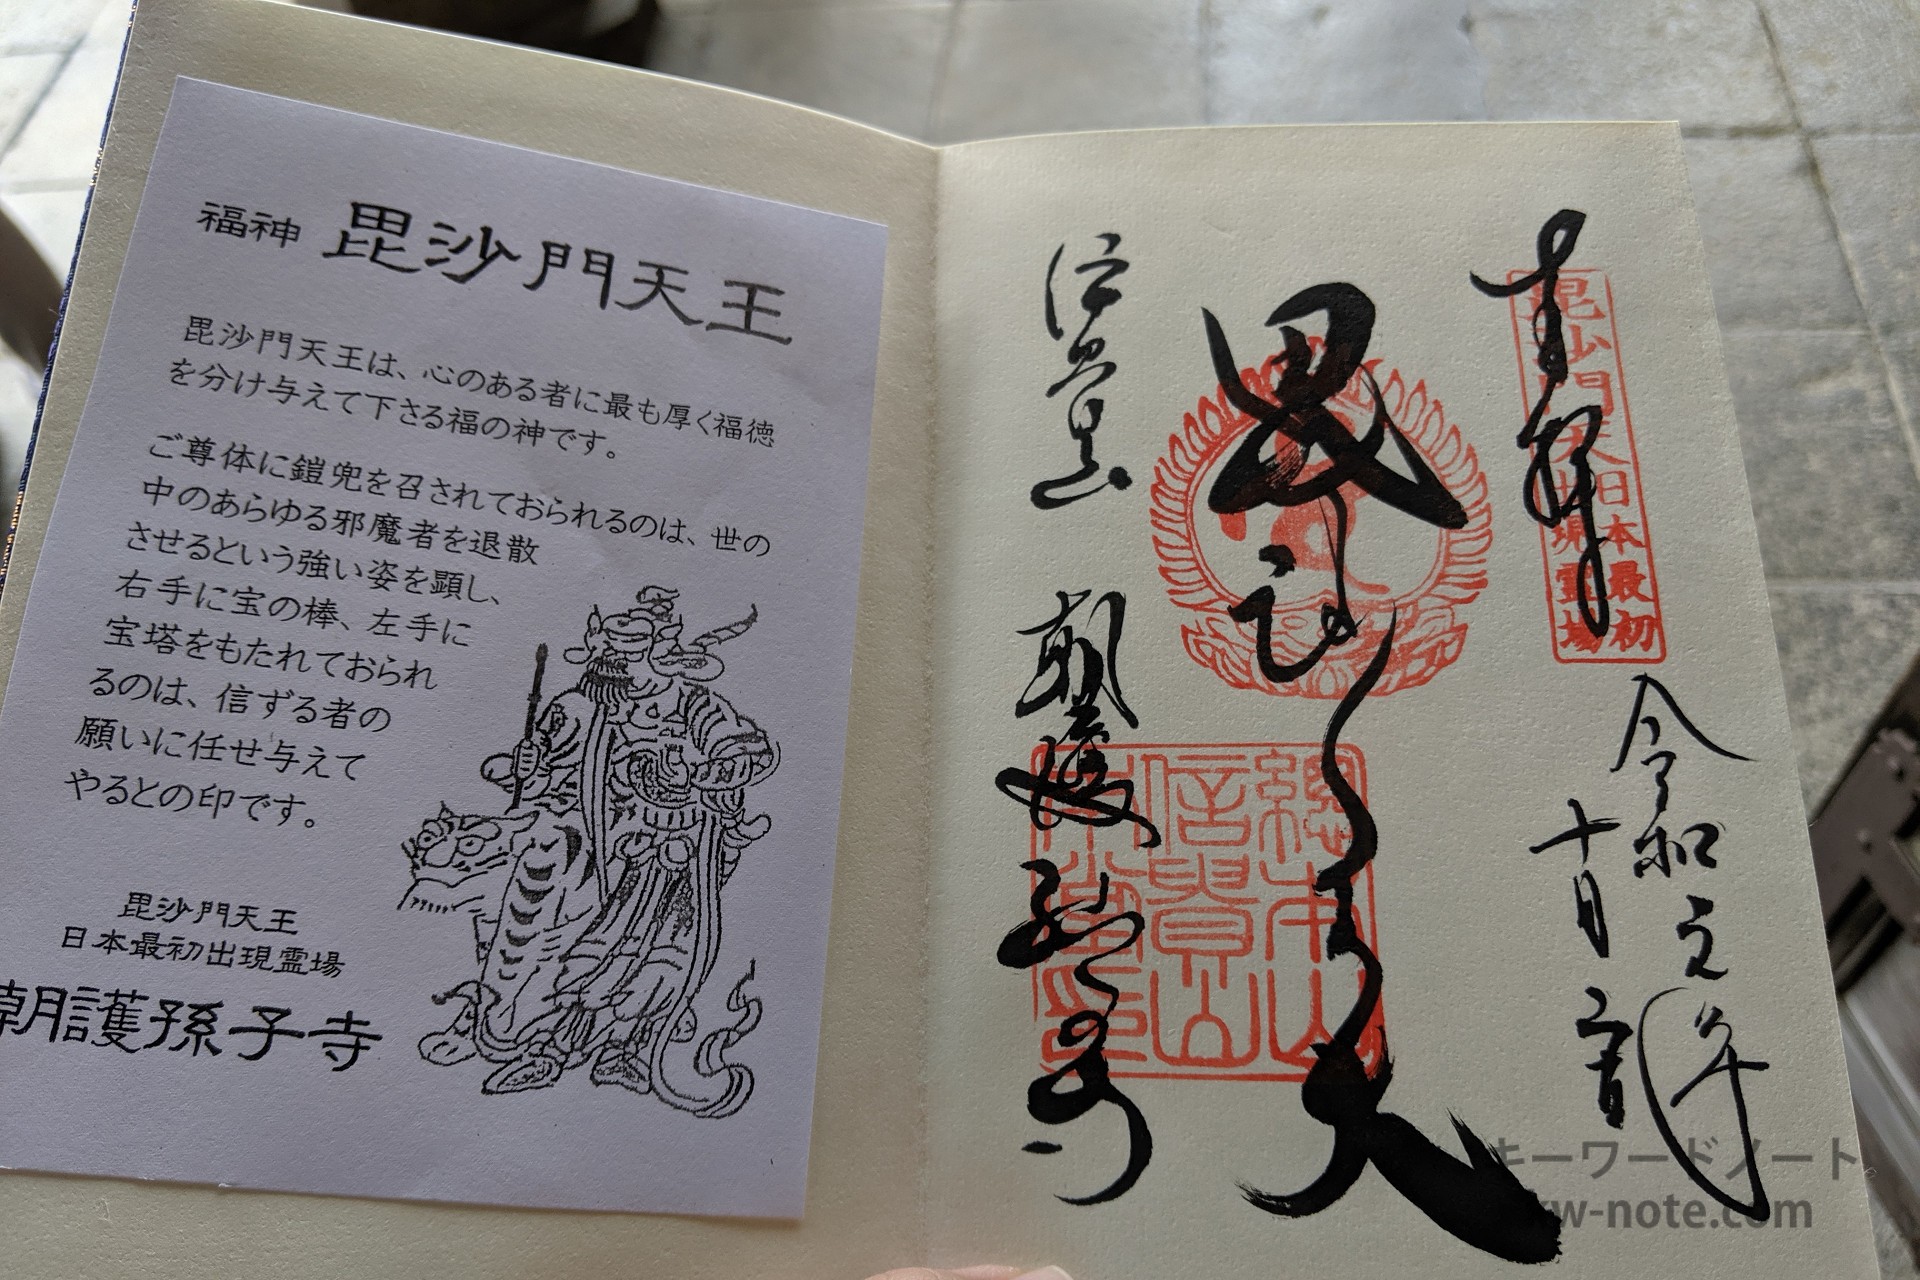 福神 毘沙門天王
毘沙門天王は、心のある者に最も厚く福徳
を分け与えて下さる福の神です。
ご尊体に鎧兜を召されておられるのは、世の
中のあらゆる邪魔者を退散
させるという強い姿を顕し、
右手に宝の棒、左手に
宝塔をもたれておられ
るのは、信ずる者の
願いに任せ与えて
やるとの印です。
毘沙門天王
日本最初出現霊場
朝護孫子寺
奉拝
毘沙門天
日本最初
出現霊場
令和元年
十月
毘沙門天
總本山
信貴山
本堂印
信貴山
朝護孫子寺
キーワードノート。
kw-note.com